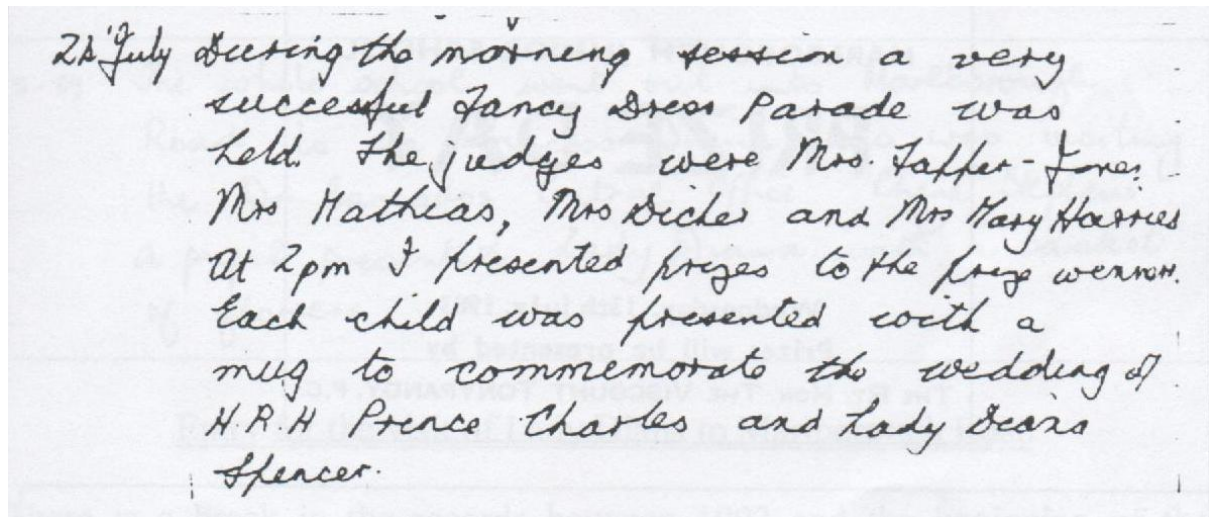 July During the morning session a very
successful Fancy Dress Parade was
held. The judges were Mrs. Tapper-Jones
Mrs Mathias, Mrs and Mrs Mary Harries
At 2pm I presented prizes to the prize winners.
Each child was presented with a
mug to commemorate the wedding of
H.R.H Prince Charles and Lady Diana
Spencer.